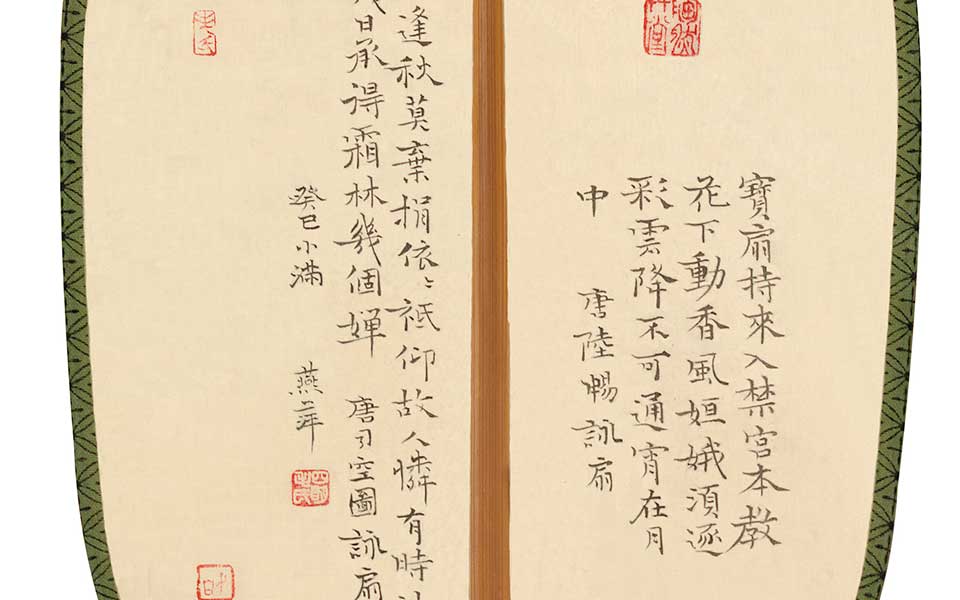 寶扇持來入禁宮本教
花下動香風姮娥須逐
彩雲降不可通宵在月
中 唐陸暢詠扇
逢秋莫棄捐依々祗仰故人憐有時
日承得霜林幾個蟬 唐司空圖詠扇
癸巳小滿 燕萍